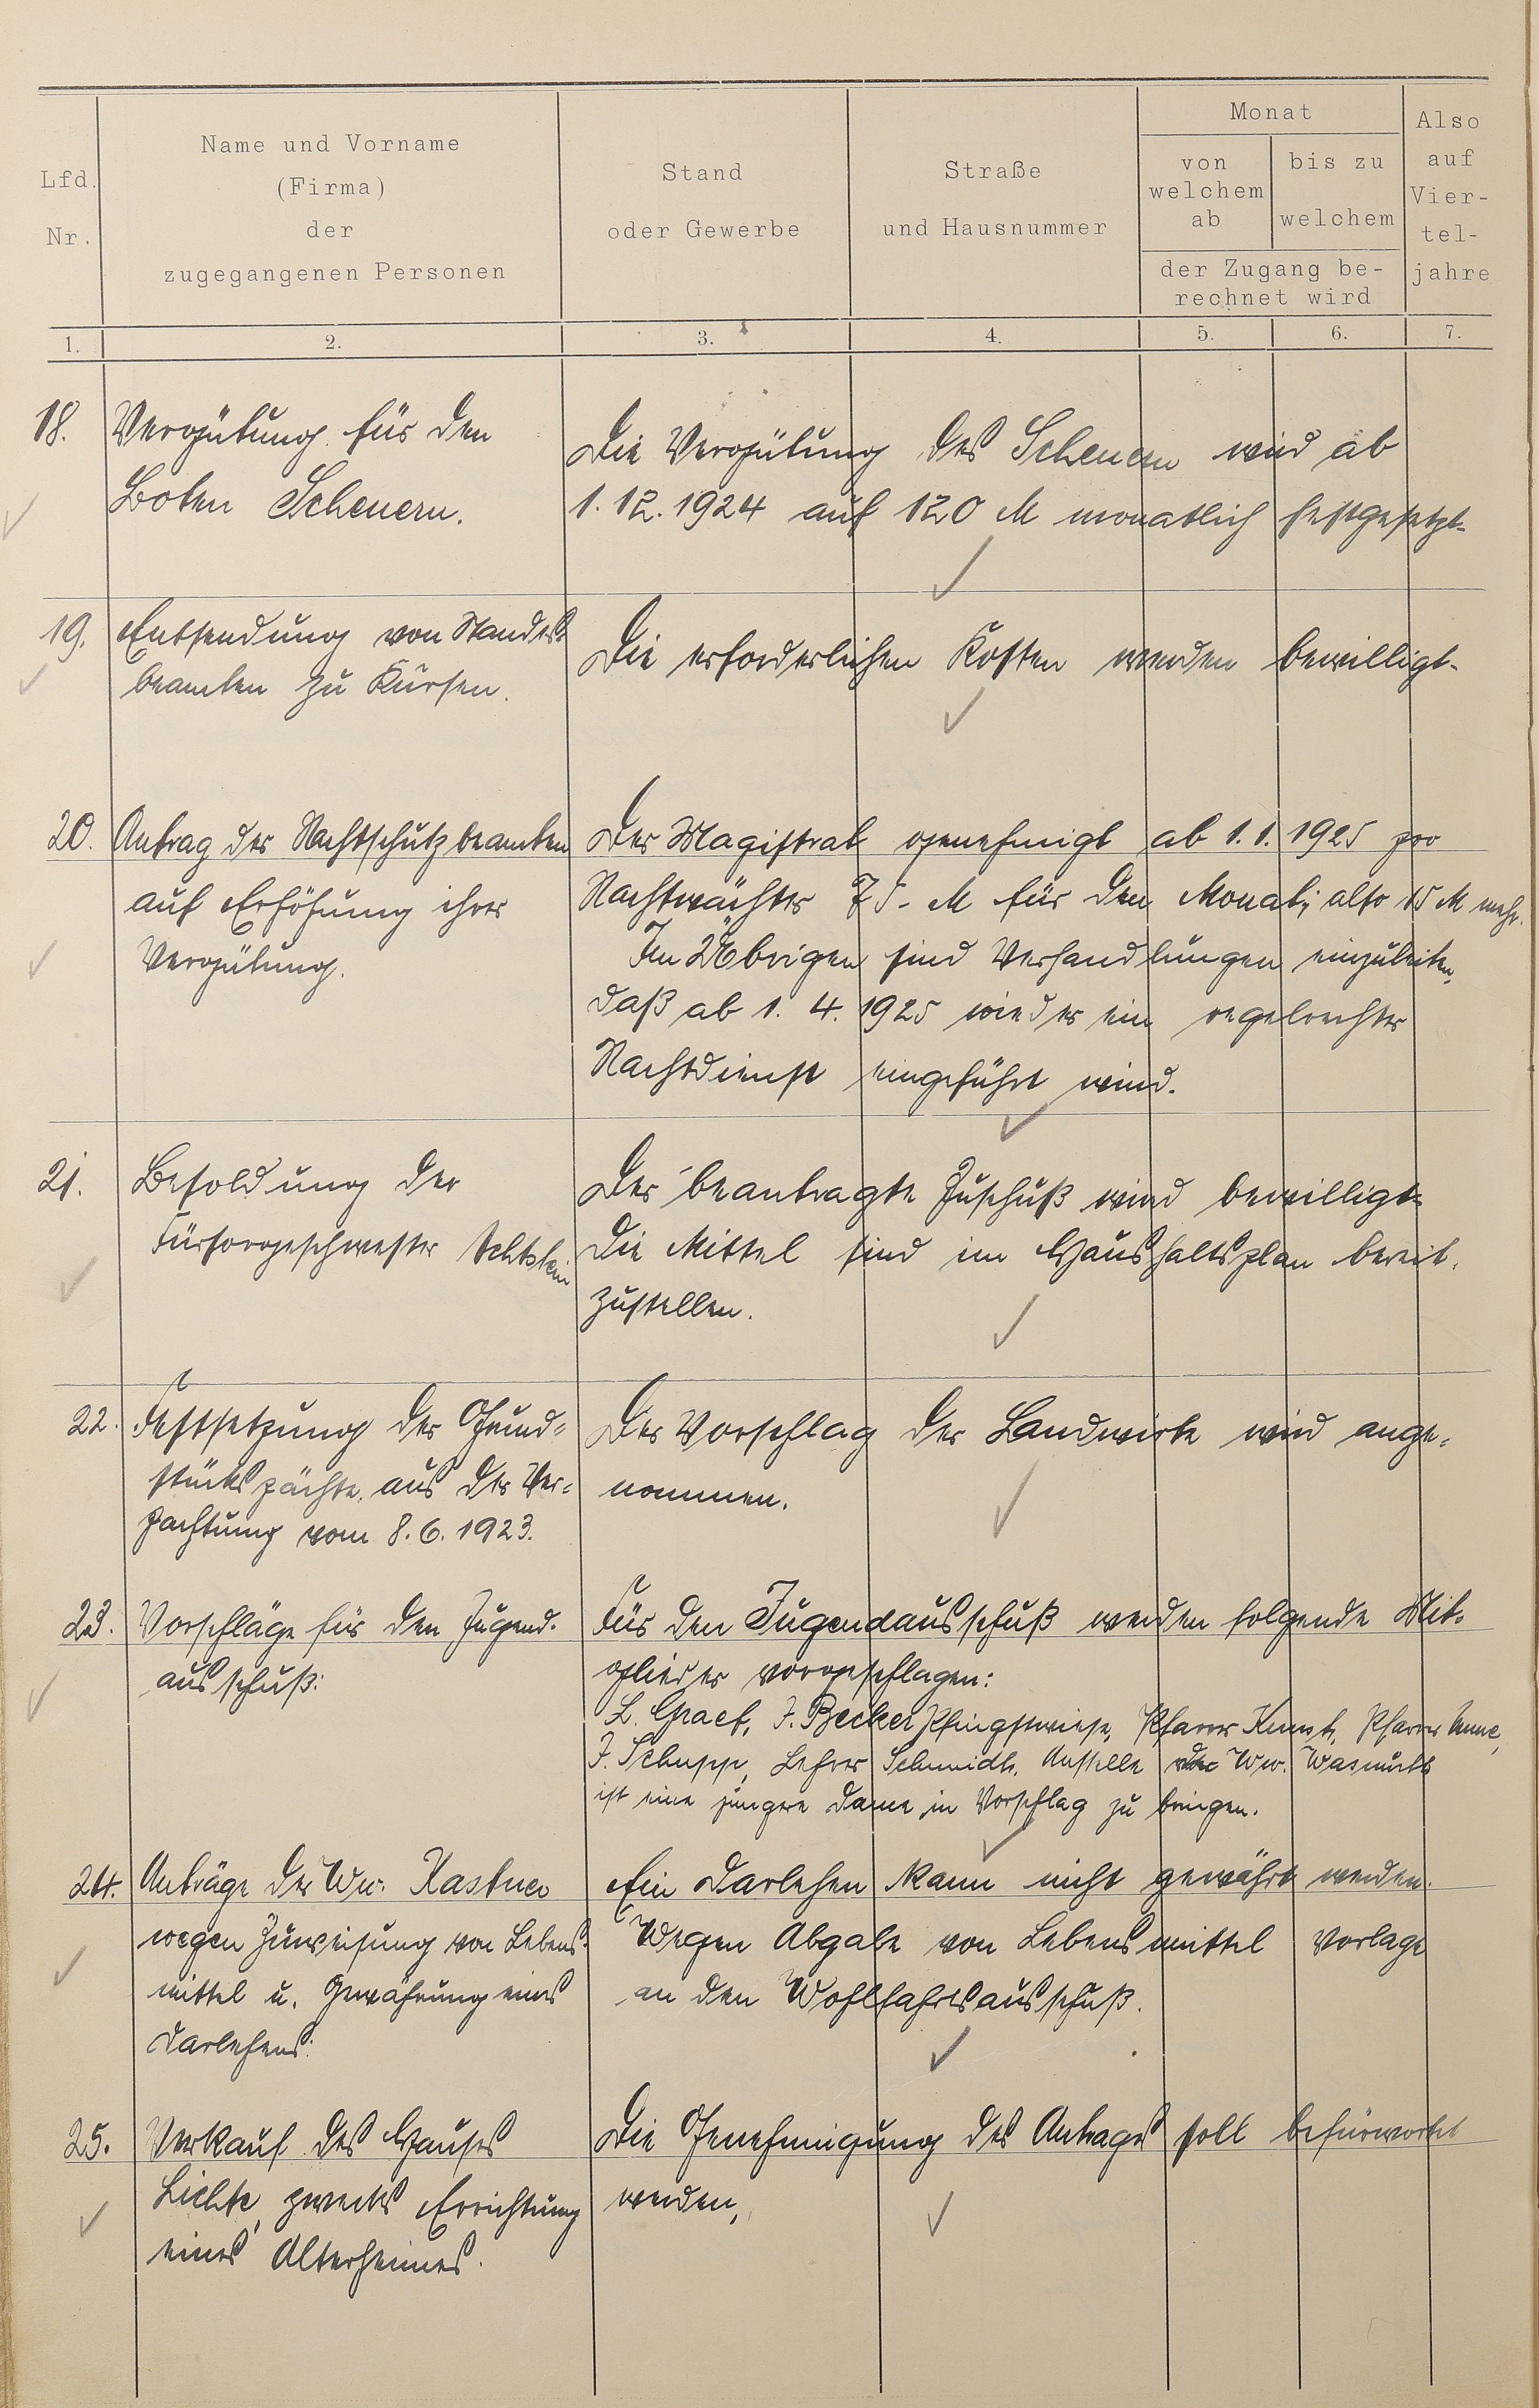 Lfd. Nr.
Name und Vorname
(Firma)
der
zugegangenen Personen
Stand
oder Gewerbe
Straße
und Hausnummer
Monat
von
welchem
ab
bis zu
welchem
der Zugang be-
rechnet wird
Also
auf
Vier-
tel-
jahre
1. 2. 3. 4. 5. 6. 7.
18. Vergütung für den
Boten Scheuern.
Die Vergütung des Scheuern wird ab
1.12.1924 auf 120 M monatlich festgesetzt.
19. Entsendung von Standes-
beamten zu Kursen.
Die erforderlichen Kosten werden bewilligt.
20. Antrag der Nachtschutzbeamten
auf Erhöhung ihrer
Vergütung.
Der Magistrat genehmigt ab 1.1.1925 pro
Nachtwächter 75.- M für den Monat, also 15 M mehr.
Im Übrigen sind Verhandlungen einzuleiten,
daß ab 1.4.1925 wieder ein regelrechter
Nachtdienst eingeführt wird.
21. Besoldung der
Fürsorgeschwester
Der beantragte Zuschuß wird bewilligt.
Die Mittel sind im Haushaltsplan bereit-
zustellen.
22. Festsetzung der Grund-
stückspächte aus der Ver-
pachtung vom 8.6.1923.
Der Vorschlag der Landwirte wird ange-
nommen.
23. Vorschläge für den Jugend-
ausschuß:
Für den Jugendausschuß werden folgende Mit-
glieder vorgeschlagen:
L. Graef, J. Becker Pfingstwiese, Pfarrer Kunst, Pfarrer
J. Schupp, Lehrer Schmidt. Anstelle der Ww. Wasmuth
ist eine jüngere Dame in Vorschlag zu bringen.
24. Anträge der Ww. Kastner
wegen Zuweisung von Lebens-
mittel u. Gewährung eines
Darlehens:
Ein Darlehen kann nicht gewährt werden.
Wegen Abgabe von Lebensmittel Vorlage
an den Wohlfahrtsausschuß.
25. Verkauf des Hauses
Lichte, zwecks Errichtung
eines Altersheimes.
Die Genehmigung des Antrags soll befürwortet
werden,